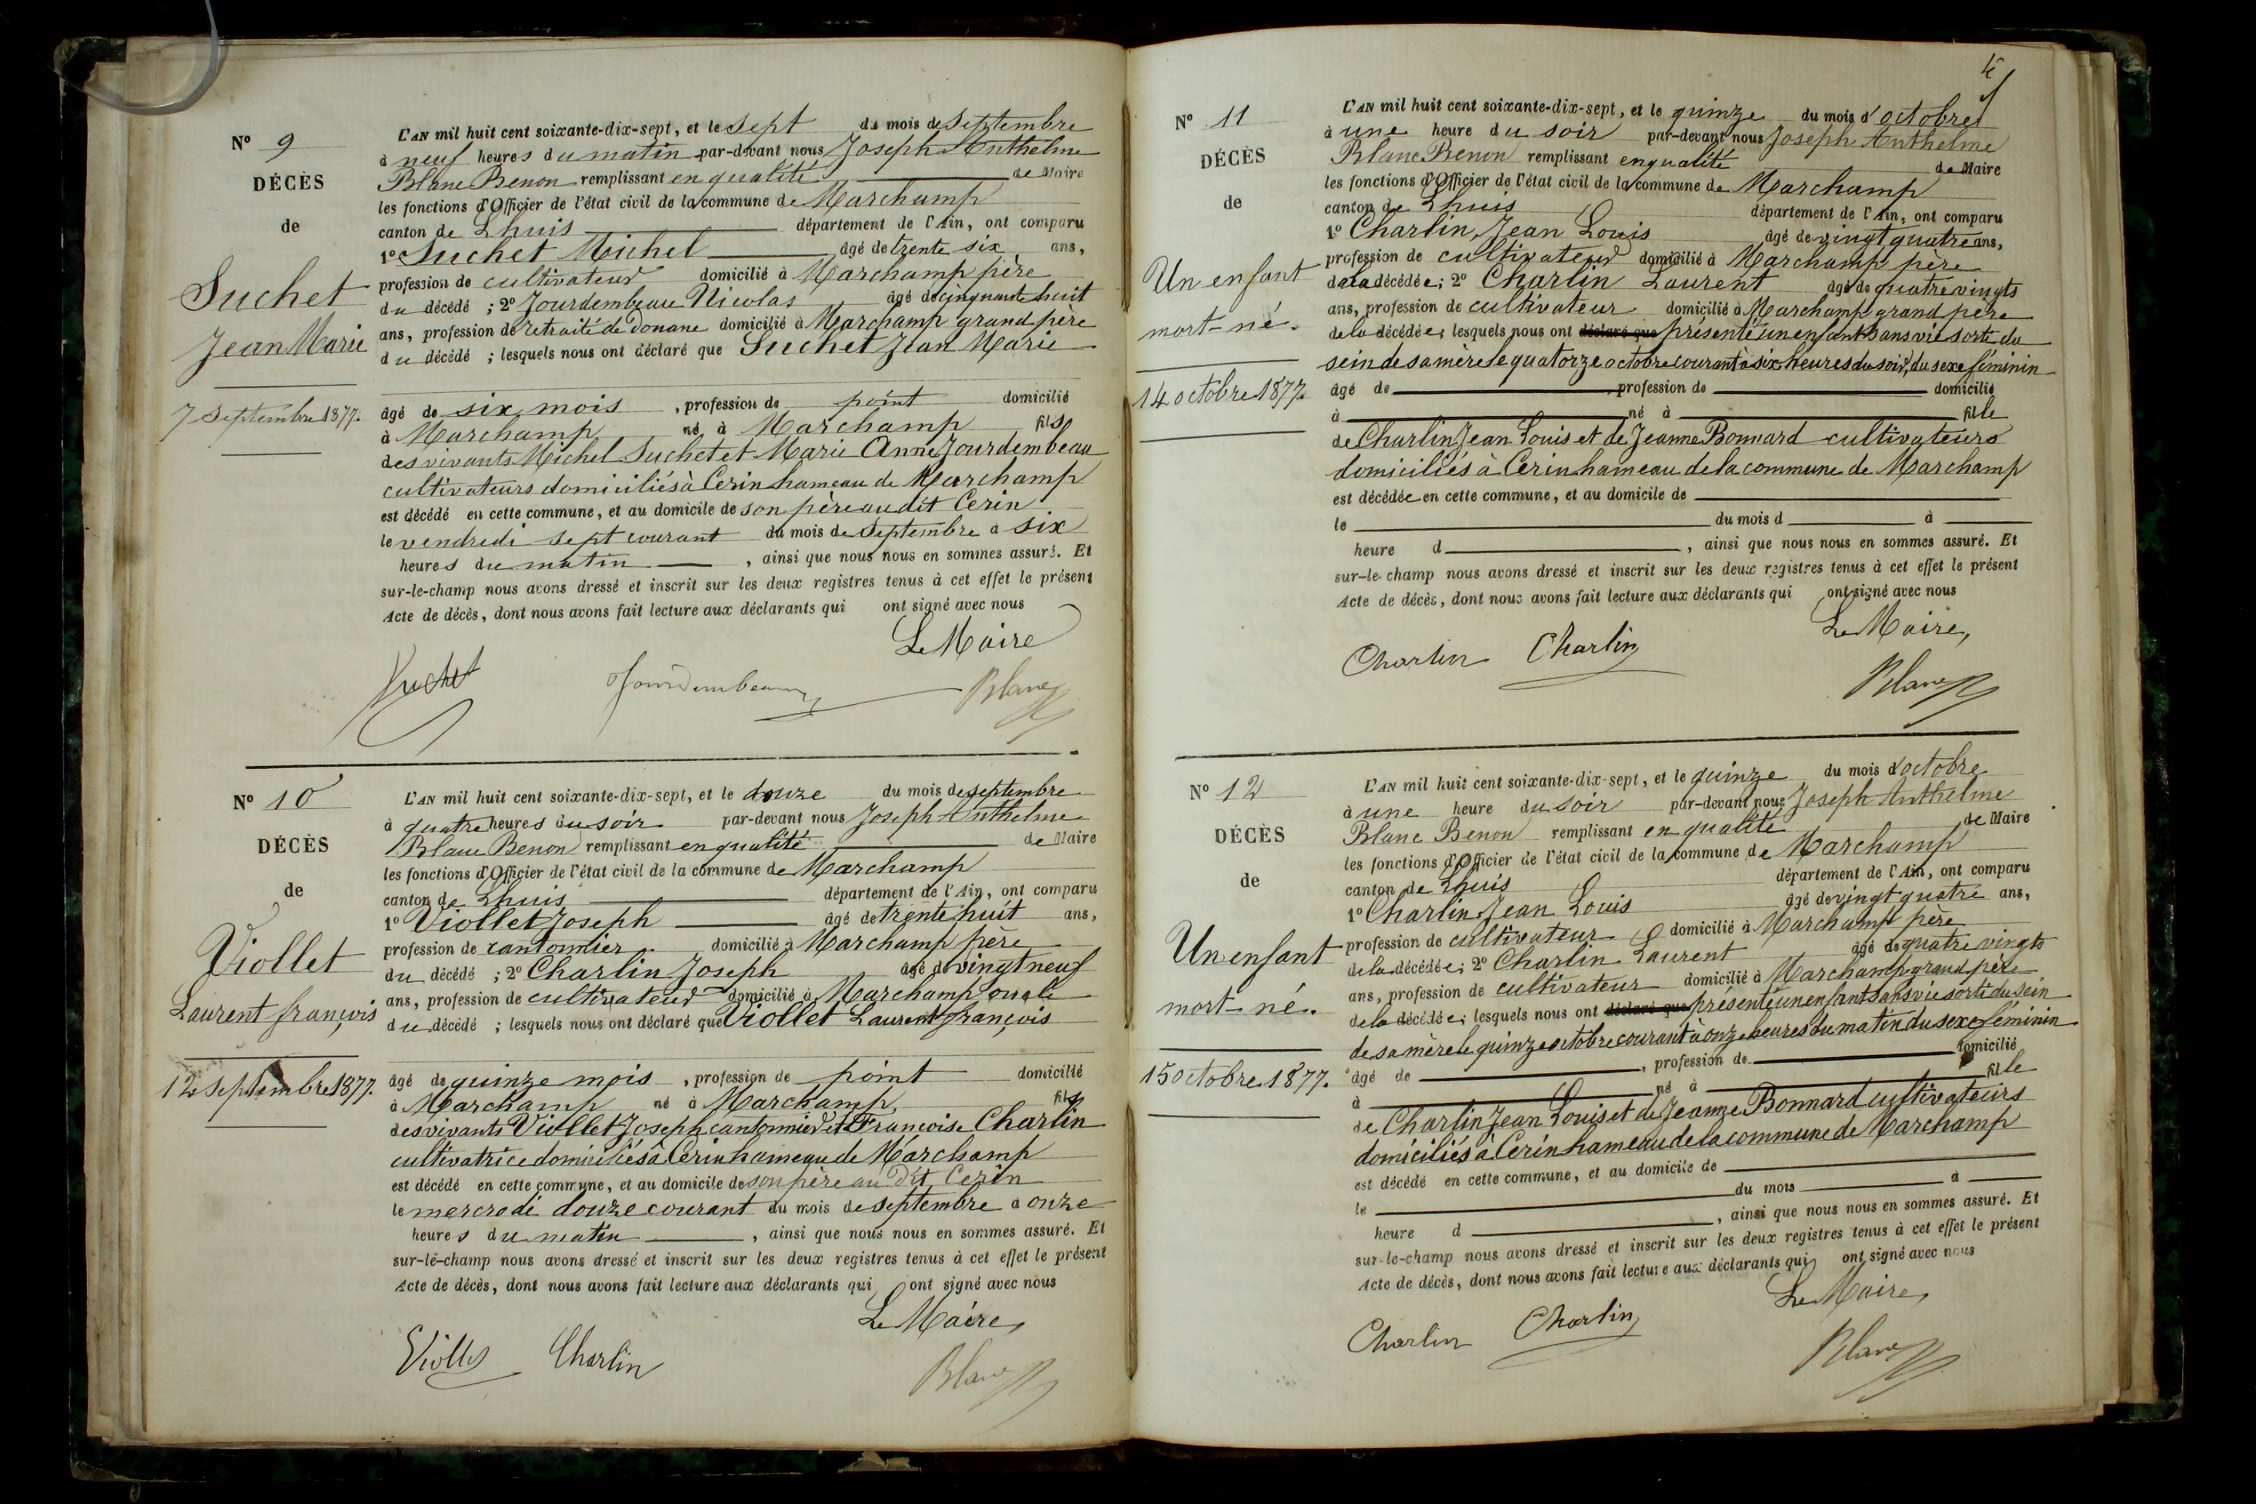 N° 9
DÉCÈS
de
Suchet
Jean Marie
7 septembre 1877.
L'AN mil huit cent soixante-dix-sept, et le sept du mois de septembre
à neuf heures du matin par-devant nous Joseph Anthelme
Blanc Benon remplissant en qualité de Maire
les fonctions d'Officier de l'état civil de la commune de Marchamp
canton de Lhuis département de l'Ain, ont comparu
1° Suchet Michel âgé de trente six ans,
profession de cultivateur domicilié à Marchamp père
du décédé ; 2° Jourdembeau Nicolas âgé de cinquante huit
ans, profession de retraité de douane domicilié à Marchamp grand père
du décédé ; lesquels nous ont déclaré que Suchet Jean Marie
âgé de six mois , profession de point domicilié
à Marchamp né à Marchamp fils
des vivants Michel Suchet et Marie Anne Jourdembeau
cultivateurs domiciliés à Cerin hameau de Marchamp
est décédé en cette commune, et au domicile de son père au dit Cerin
le vendredi sept courant du mois de septembre à six
heures du matin , ainsi que nous nous en sommes assuré. Et
sur-le-champ nous avons dressé et inscrit sur les deux registres tenus à cet effet le présent
Acte de décès, dont nous avons fait lecture aux déclarants qui ont signé avec nous
Le Maire
Suchet Jourdembeau Blanc
N° 10
DÉCÈS
de
Viollet
Laurent françois
12 septembre 1877.
L'AN mil huit cent soixante-dix-sept, et le douze du mois de septembre
à quatre heures du soir par-devant nous Joseph Anthelme
Blanc Benon remplissant en qualité de Maire
les fonctions d'Officier de l'état civil de la commune de Marchamp
canton de Lhuis département de l'Ain, ont comparu
1° Viollet Joseph âgé de trente huit ans,
profession de cantonnier domicilié à Marchamp père
du décédé ; 2° Charlin Joseph âgé de vingt neuf
ans, profession de cultivateur domicilié à Marchamp oncle
du décédé ; lesquels nous ont déclaré que Viollet Laurent françois
âgé de quinze mois , profession de point domicilié
à Marchamp né à Marchamp, fils
des vivants Viollet Joseph cantonnier et Françoise Charlin
cultivatrice domiciliés à Cerin hameau de Marchamp
est décédé en cette commune, et au domicile de son père au dit Cerin
le mercredi douze courant du mois de septembre à onze
heures du matin , ainsi que nous nous en sommes assuré. Et
sur-le-champ nous avons dressé et inscrit sur les deux registres tenus à cet effet le présent
Acte de décès, dont nous avons fait lecture aux déclarants qui ont signé avec nous
Le Maire
Viollet Charlin Blanc
N° 11
DÉCÈS
de
Un enfant
mort-né.
14 octobre 1877.
L'AN mil huit cent soixante-dix-sept, et le quinze du mois d'octobre
à une heure du soir par-devant nous Joseph Anthelme
Blanc Benon remplissant en qualité de Maire
les fonctions d'Officier de l'état civil de la commune de Marchamp
canton de Lhuis département de l'Ain, ont comparu
1° Charlin Jean Louis âgé de vingt quatre ans,
profession de cultivateur domicilié à Marchamp père
de la décédée ; 2° Charlin Laurent âgé de quatre vingts
ans, profession de cultivateur domicilié à Marchamp grand père
de la décédée ; lesquels nous ont déclaré que présenté un enfant sans vie sorti du
sein de sa mère le quatorze octobre courant à six heures du soir, du sexe féminin
âgé de profession de domicilié
à né à fille
de Charlin Jean Louis et de Jeanne Bonnard cultivateurs
domiciliés à Cerin hameau de la commune de Marchamp
est décédée en cette commune, et au domicile de
le du mois d à
heure d , ainsi que nous nous en sommes assuré. Et
sur-le-champ nous avons dressé et inscrit sur les deux registres tenus à cet effet le présent
Acte de décès, dont nous avons fait lecture aux déclarants qui ont signé avec nous
Le Maire,
Charlin Charlin Blanc
N° 12
DÉCÈS
de
Un enfant
mort-né.
15 octobre 1877.
L'AN mil huit cent soixante-dix-sept, et le quinze du mois d'octobre
à une heure du soir par-devant nous Joseph Anthelme
Blanc Benon remplissant en qualité de Maire
les fonctions d'Officier de l'état civil de la commune de Marchamp
canton de Lhuis département de l'Ain, ont comparu
1° Charlin Jean Louis âgé de vingt quatre ans,
profession de cultivateur domicilié à Marchamp père
de la décédée ; 2° Charlin Laurent âgé de quatre vingts
ans, profession de cultivateur domicilié à Marchamp grand père
de la décédée ; lesquels nous ont déclaré que présenté un enfant sans vie sorti du sein
de sa mère le quinze octobre courant à onze heures du matin du sexe féminin
âgé de , profession de domicilié
à né à fille
de Charlin Jean Louis et de Jeanne Bonnard cultivateurs
domiciliés à Cerin hameau de la commune de Marchamp
est décédé en cette commune, et au domicile de
le du mois à
heure d , ainsi que nous nous en sommes assuré. Et
sur-le-champ nous avons dressé et inscrit sur les deux registres tenus à cet effet le présent
Acte de décès, dont nous avons fait lecture aux déclarants qui ont signé avec nous
Le Maire,
Charlin Charlin Blanc